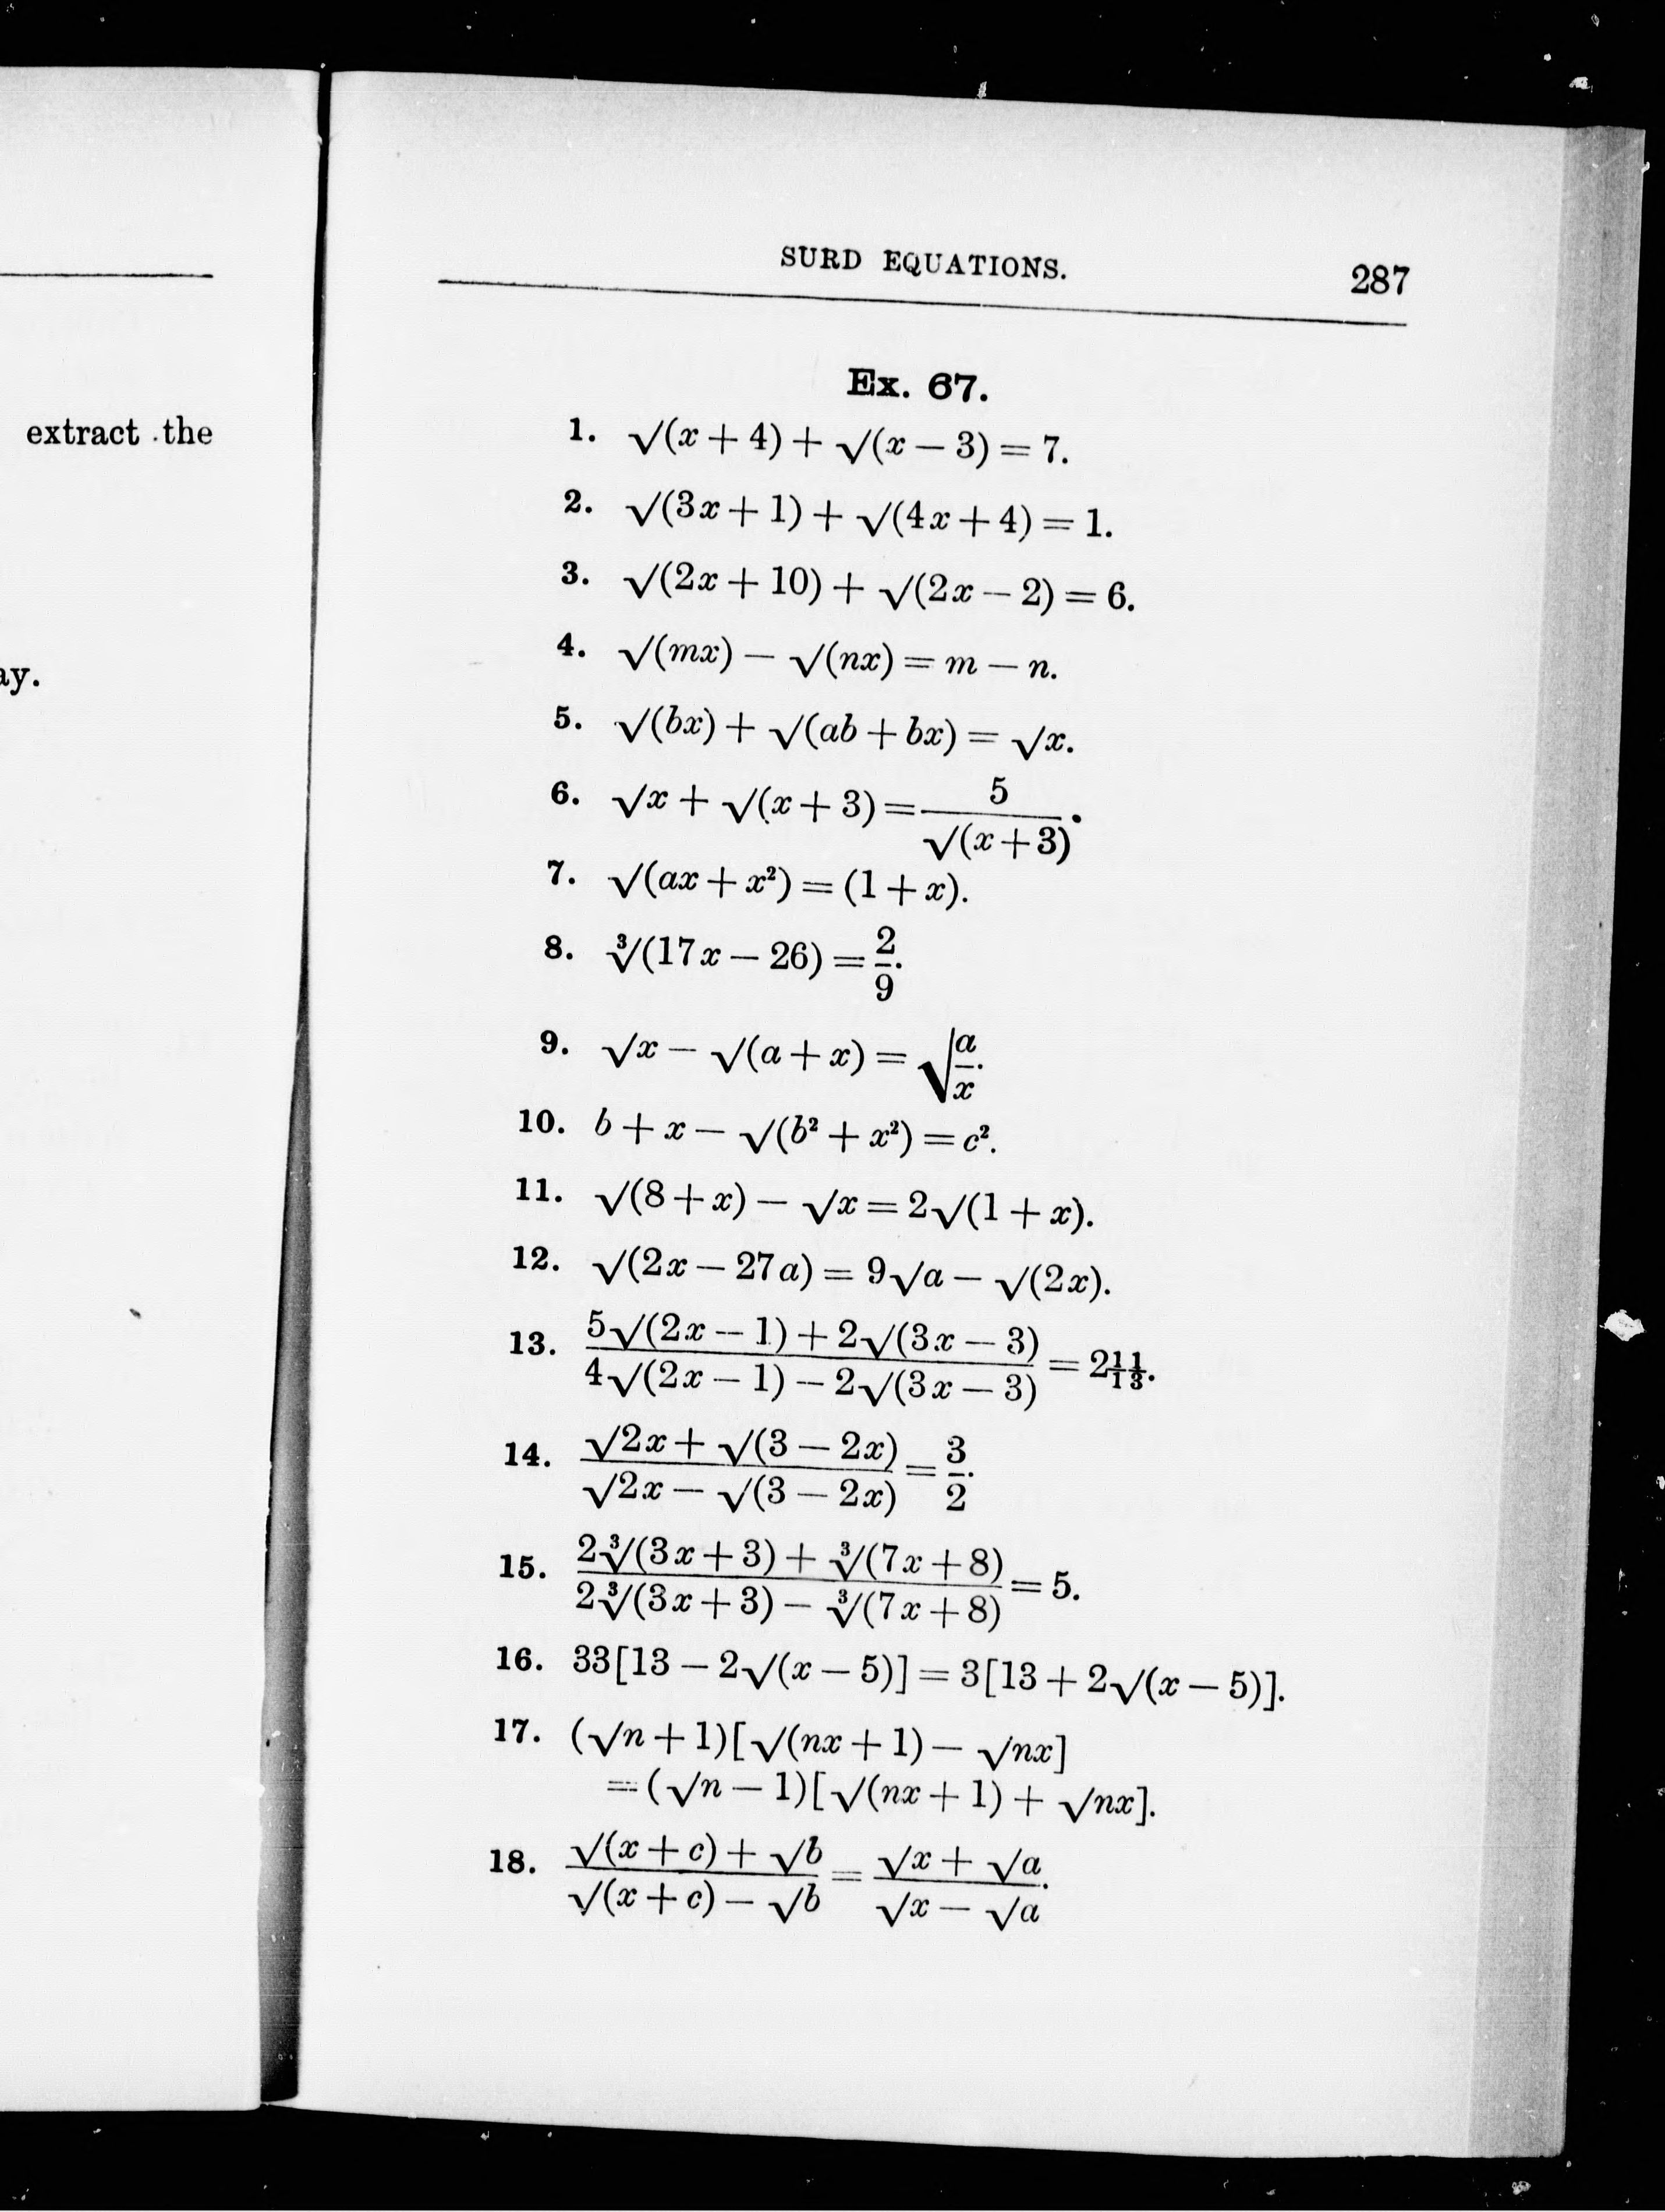 extract the
ay.
SURD EQUATIONS. 287
Ex. 67.
1. √(x + 4) + √(x − 3) = 7.
2. √(3x + 1) + √(4x + 4) = 1.
3. √(2x + 10) + √(2x − 2) = 6.
4. √(mx) − √(nx) = m − n.
5. √(bx) + √(ab + bx) = √x.
6. √x + √(x + 3) = 5/√(x + 3).
7. √(ax + x²) = (1 + x).
8. ∛(17x − 26) = 2/9.
9. √x − √(a + x) = √(a/x).
10. b + x − √(b² + x²) = c².
11. √(8 + x) − √x = 2√(1 + x).
12. √(2x − 27a) = 9√a − √(2x).
13. (5√(2x − 1) + 2√(3x − 3))/(4√(2x − 1) − 2√(3x − 3)) = 2 11/13.
14. (√2x + √(3 − 2x))/(√2x − √(3 − 2x)) = 3/2.
15. (2∛(3x + 3) + ∛(7x + 8))/(2∛(3x + 3) − ∛(7x + 8)) = 5.
16. 33[13 − 2√(x − 5)] = 3[13 + 2√(x − 5)].
17. (√n + 1)[√(nx + 1) − √nx]
= (√n − 1)[√(nx + 1) + √nx].
18. (√(x + c) + √b)/(√(x + c) − √b) = (√x + √a)/(√x − √a).